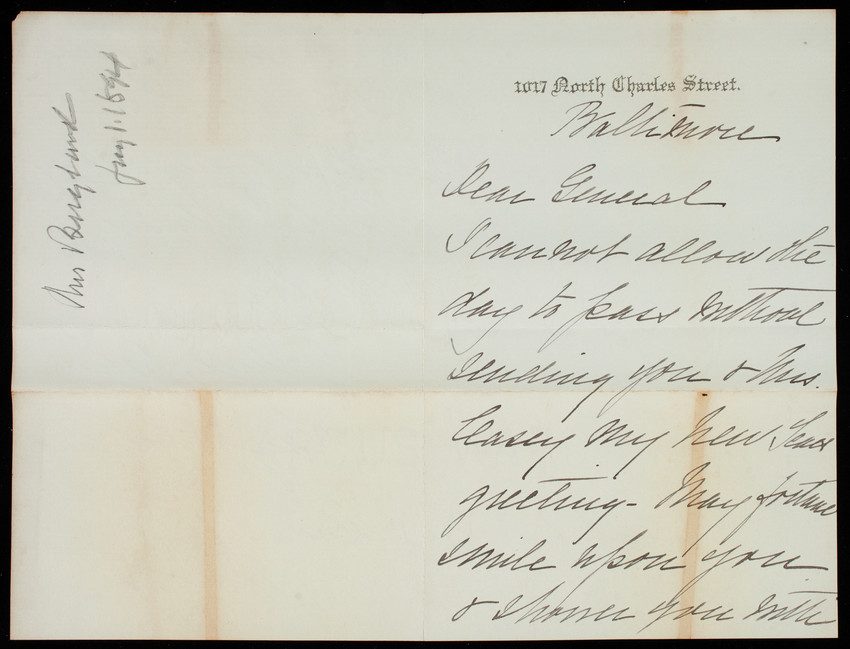 1017 North Charles Street.
Baltimore
Dear General
I cannot allow the
day to pass without
sending you & Mrs.
Casey my New Years
greeting - May fortune
smile upon you
& shower you with
Mrs
Jany 1. 1894